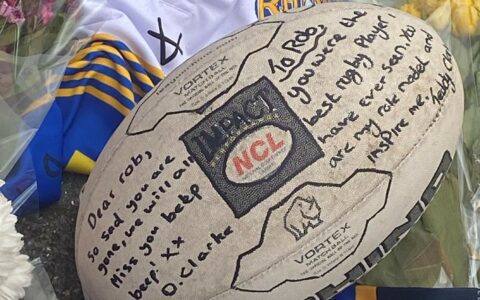 Dear rob,
So sad you are
gone, we will all
Miss you beep
beep. xx
D. Clarke
VORTEX
MATCH BALL
IMPACT
NCL
VORTEX
MATCH BALL
To Rob,
you were the
best rugby player I
have ever seen. You
are my role model and
inspire me.